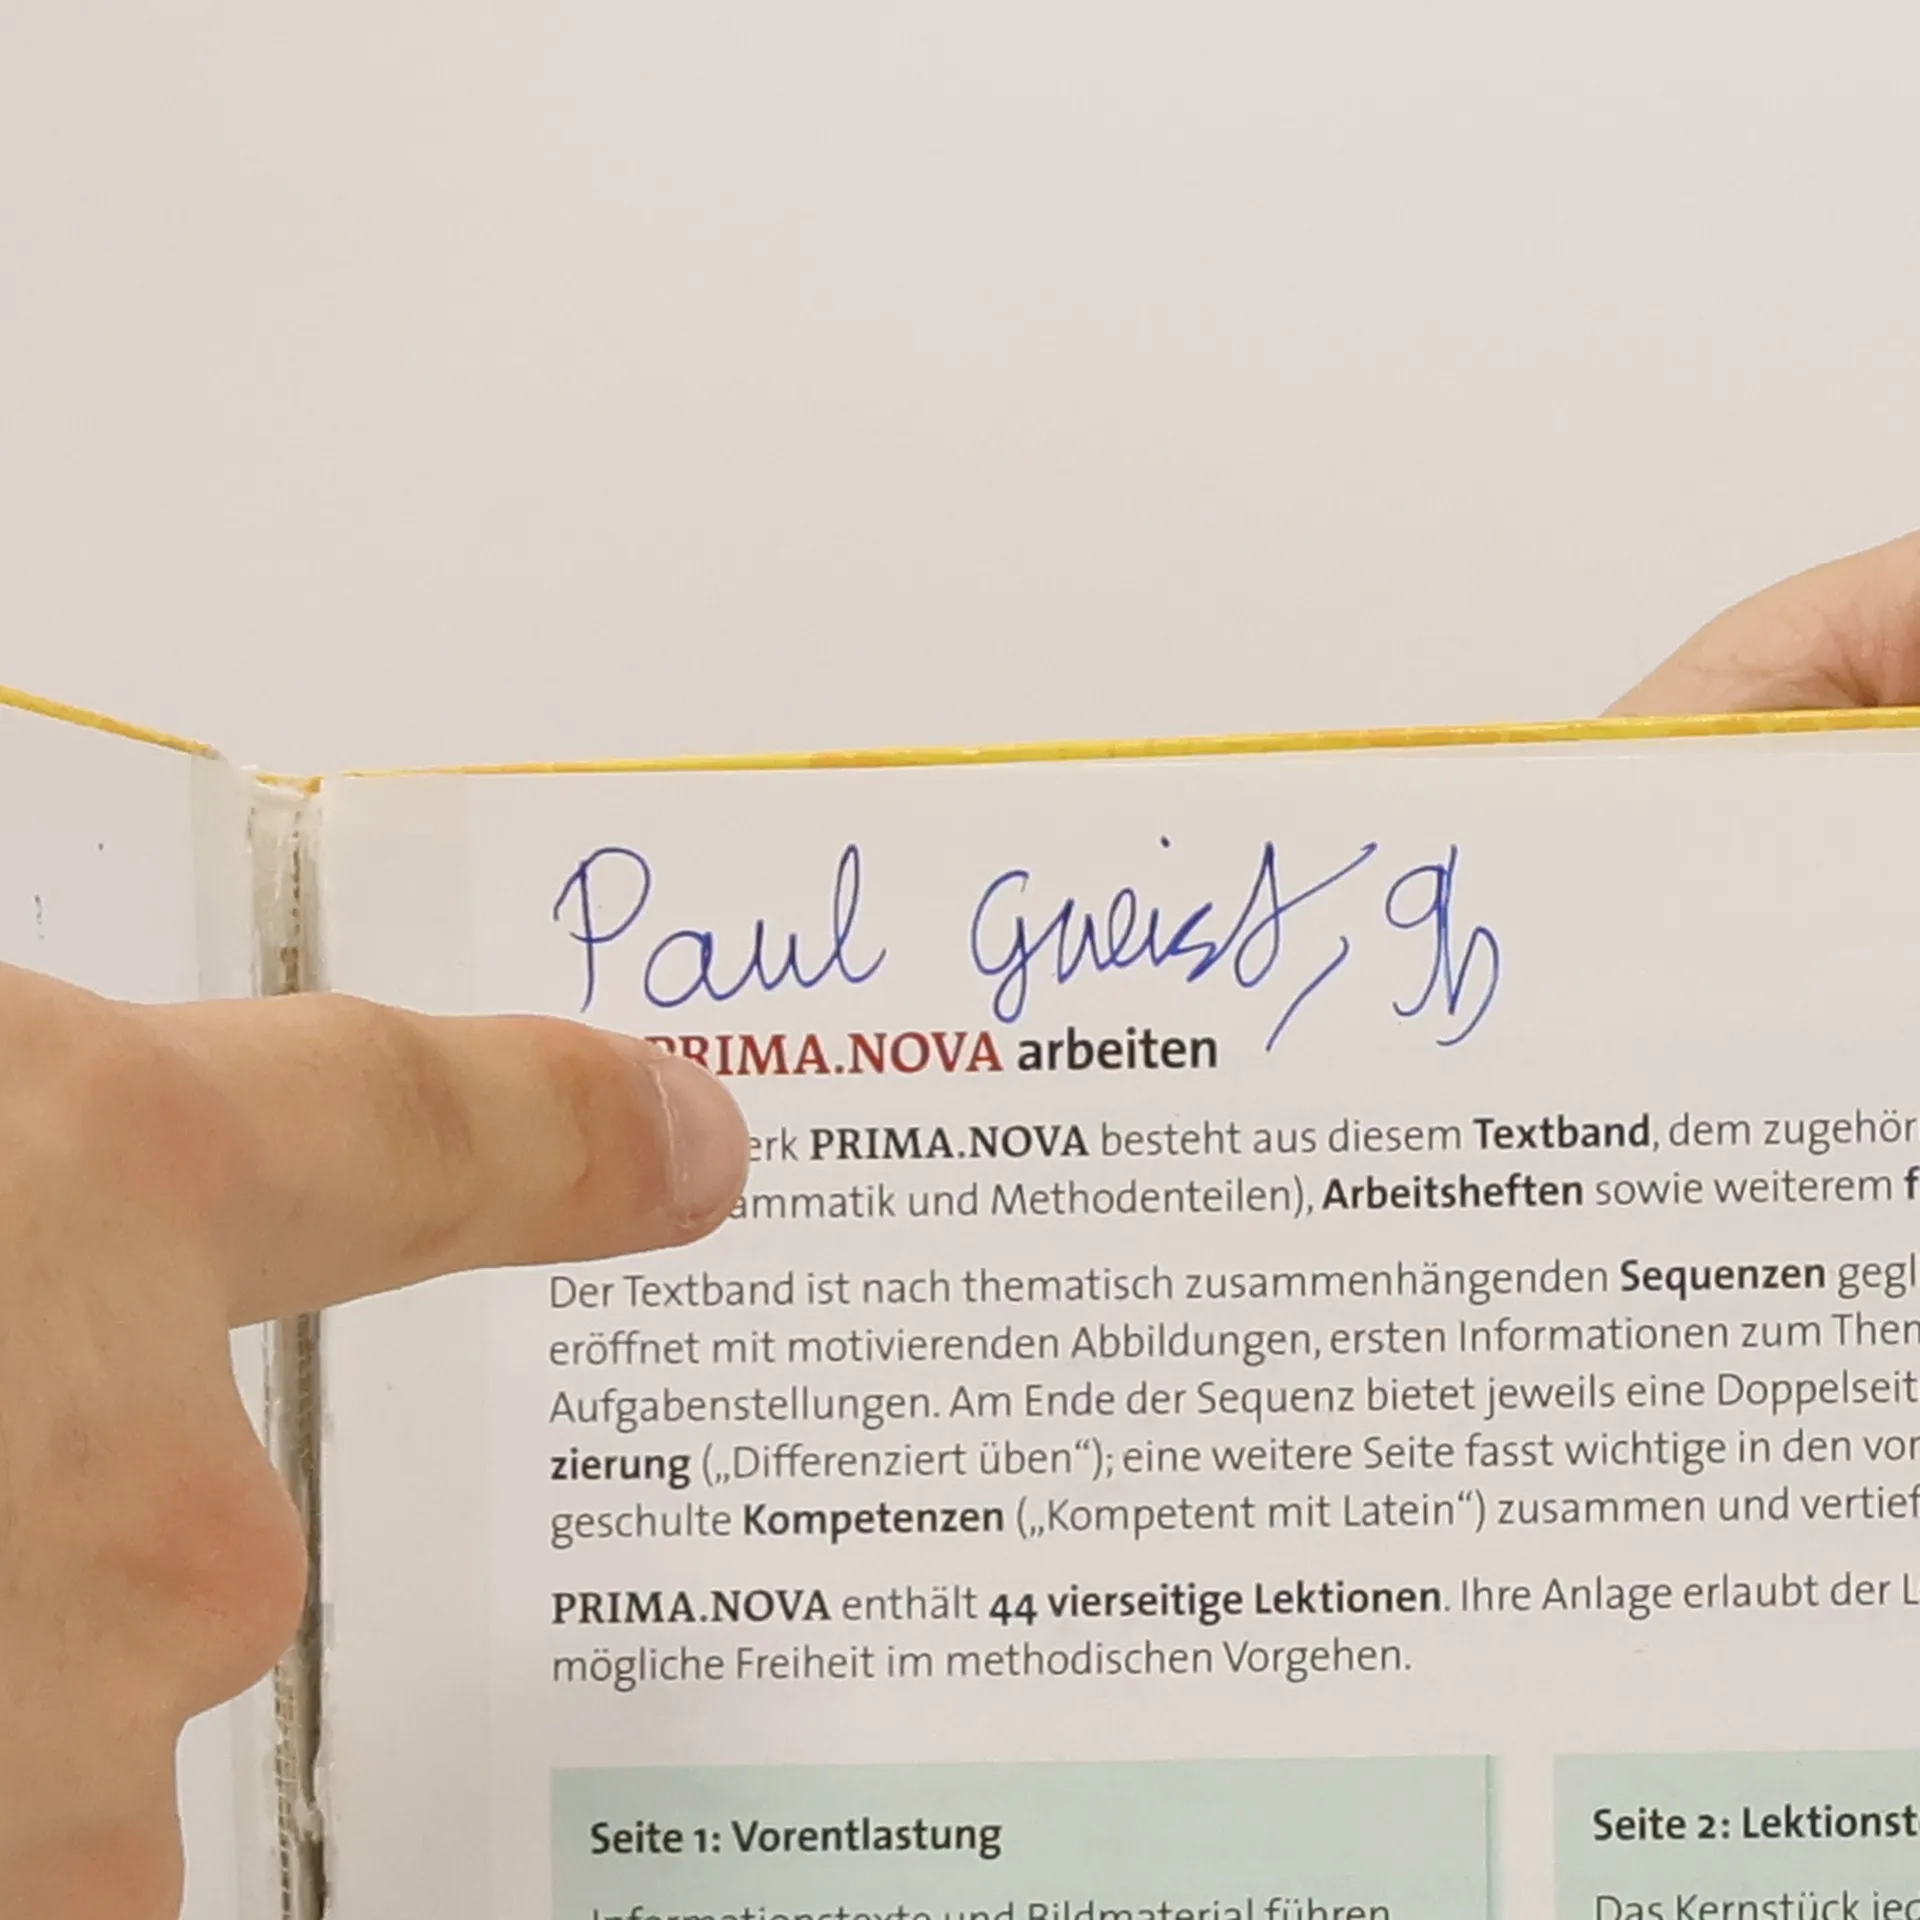 Paul Gneist, 9b
PRIMA.NOVA arbeiten
erk PRIMA.NOVA besteht aus diesem Textband, dem zugehör
ammatik und Methodenteilen), Arbeitsheften sowie weiterem f
Der Textband ist nach thematisch zusammenhängenden Sequenzen gegl
eröffnet mit motivierenden Abbildungen, ersten Informationen zum Them
Aufgabenstellungen. Am Ende der Sequenz bietet jeweils eine Doppelseit
zierung („Differenziert üben“); eine weitere Seite fasst wichtige in den vor
geschulte Kompetenzen („Kompetent mit Latein“) zusammen und vertief
PRIMA.NOVA enthält 44 vierseitige Lektionen. Ihre Anlage erlaubt der L
mögliche Freiheit im methodischen Vorgehen.
Seite 1: Vorentlastung
Informationstexte und Bildmaterial führen
Seite 2: Lektionst
Das Kernstück jed